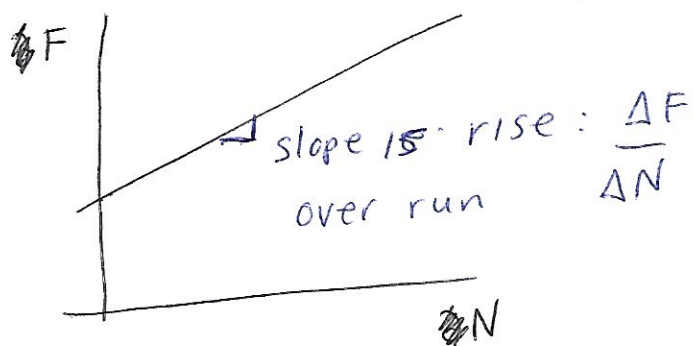 F
slope is rise : ΔF
over run ΔN
N